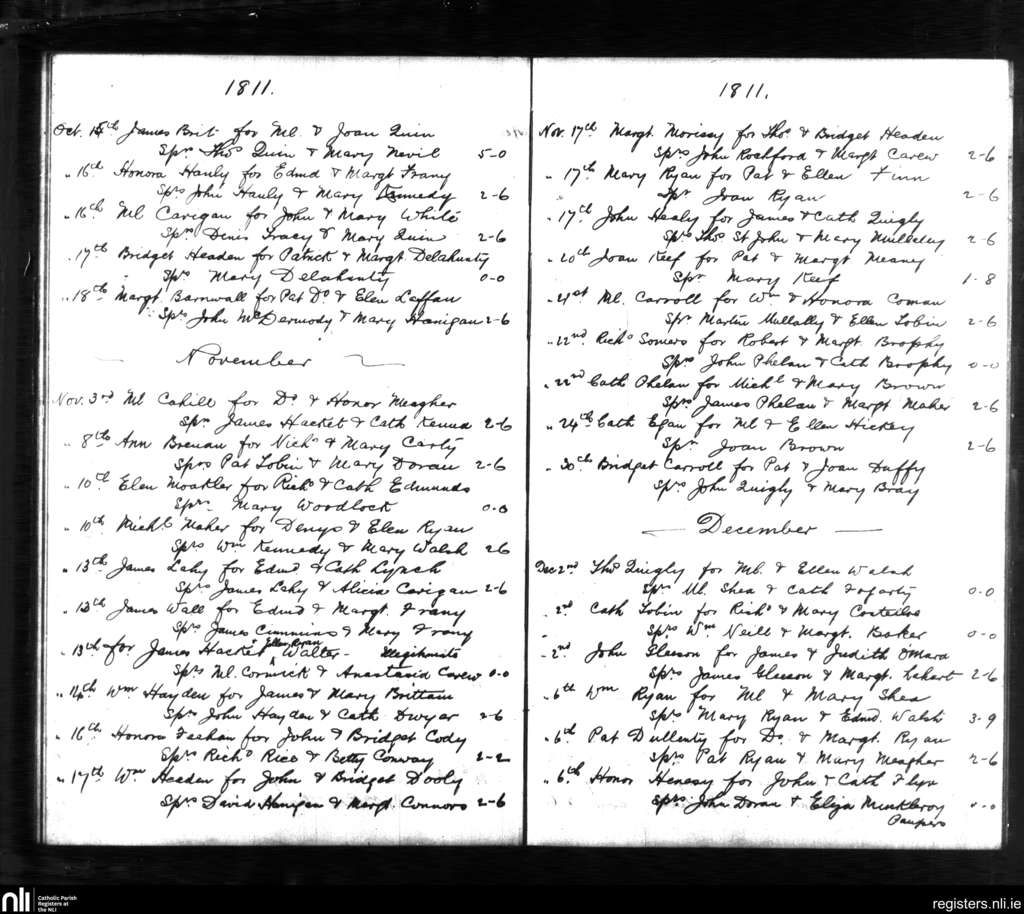 1811.
Oct. 15th James Brit for Ml. & Joan Quin
Sprs Thos Quin & Mary Nevil 5-0
" 16th Honora Hanly for Edmd & Margt Frany
Sprs John Hanly & Mary Kennedy 2-6
" 16th Ml Carigan for John & Mary White
Sprs Denis Tracy & Mary Quin 2-6
" 17th Bridget Headen for Patrick & Margt Delahunty
Spr. Mary Delahunty 0-0
" 18th Margt. Barnwall for Pat Do & Elen Laffan
Sprs John McDermody & Mary Hanigan 2-6
— November —
Nov. 3rd Ml Cahill for Do & Honor Meagher
Sprs James Hacket & Cath Kenna 2-6
" 8th Ann Brenan for Nichs & Mary Carty
Sprs Pat Tobin & Mary Doran 2-6
" 10th Elen Moakler for Richd & Cath Edmunds
Spr. Mary Woodlock 0.0
" 10th Michl Maher for Denys & Elen Ryan
Sprs Wm Kennedy & Mary Walsh 2-6
" 13th James Lahy for Edmd & Cath Lynch
Sprs James Lahy & Alicia Carigan 2-6
" 13th James Wall for Edmd & Margt. Frany
Sprs James Cummins & Mary Frany
" 13th for James Hacket Walter - Illegitimate
Sprs Ml. Cormick & Anastasia Carew 0-0
" 14th Wm Hayden for James & Mary Brittain
Sprs John Hayden & Cath Dwyer 2-6
" 16th Honora Feehan for John & Bridget Cody
Sprs Richd Rice & Betty Conway 2-2
" 17th Wm Headen for John & Bridget Dooly
Sprs David Hanigan & Margt Connors 2-6
1811.
Nov. 17th Margt. Morissy for Thos. & Bridget Headen
Sprs John Rochford & Margt Carew 2-6
" 17th Mary Ryan for Pat & Ellen Finn
Spr Joan Ryan 2-6
" 17th John Healy for James & Cath Quigly
Sprs Thos St John & Mary Mullally 2-6
" 20th Joan Keef for Pat & Margt Meany
Spr Mary Keef 1-8
" 21st Ml. Carroll for Wm & Honora Coman
Sprs Martin Mullally & Ellen Tobin 2-6
" 22nd Richd Somers for Robert & Margt Brophy
Sprs John Phelan & Cath Brophy 0-0
" 22nd Cath Phelan for Michl & Mary Brown
Sprs James Phelan & Margt Maher 2-6
" 24th Cath Egan for Ml & Ellen Hickey
Spr Joan Brown 2-6
" 30th Bridget Carroll for Pat & Joan Duffy
Sprs John Quigly & Mary Bray
— December —
Dec 2nd Thos Quigly for Ml. & Ellen Walsh
Sprs Ml. Shea & Cath Fogarty 0.0
" 2nd Cath Tobin for Richd & Mary
Sprs Wm Neill & Margt. Baker 0-0
" 2nd John Gleeson for James & Judith OMara
Sprs James Gleeson & Margt. 2-6
" 6th Wm Ryan for Ml & Mary Shea
Sprs Mary Ryan & Edmd. Walsh 3-9
" 6th Pat Dullenty for Do. & Margt. Ryan
Sprs Pat Ryan & Mary Meagher 2-6
" 6th Honor Henesy for John & Cath
Sprs John Doran & Eliza 0-0
Paupers
nli
Catholic Parish
Registers at
the NLI
registers.nli.ie